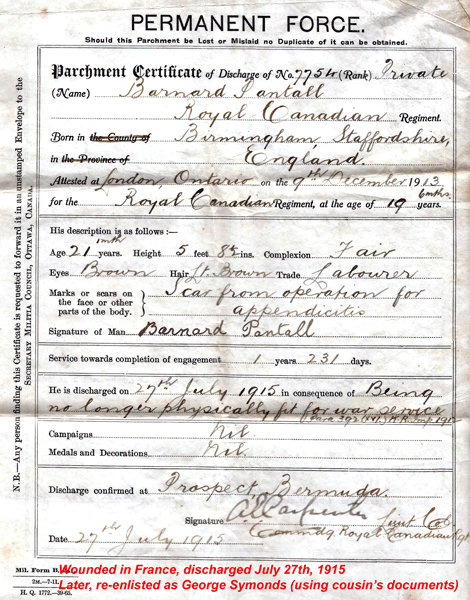 PERMANENT FORCE.
Should this Parchment be Lost or Mislaid no Duplicate of it can be obtained.
Parchment Certificate of Discharge of No. 7754 (Rank) Private
(Name) Barnard Pantall
Royal Canadian Regiment.
Born in the County of Birmingham, Staffordshire,
in the Province of England.
Attested at London, Ontario on the 9th December 1913
6mths.
for the Royal Canadian Regiment, at the age of 19 years.
His description is as follows :—
1mth
Age 21 years. Height 5 feet 8½ ins. Complexion Fair
Eyes Brown Hair Lt. Brown Trade Labourer
Marks or scars on the face or other parts of the body. } Scar from operation for
appendicitis
Signature of Man Barnard Pantall
Service towards completion of engagement 1 years 231 days.
He is discharged on 27th July 1915 in consequence of Being
no longer physically fit for war service
Campaigns Nil.
Medals and Decorations Nil.
Discharge confirmed at Prospect, Bermuda.
Signature A. E. Carpenter Lieut Col
Commdg Royal Canadian Rgt
Date 27th July 1915
N.B.—Any person finding this Certificate is requested to forward it in an unstamped Envelope to the
SECRETARY MILITIA COUNCIL, OTTAWA, CANADA.
Mil. Form B.
2M.—7-11.
H. Q. 1772.—39-65.
Wounded in France, discharged July 27th, 1915
Later, re-enlisted as George Symonds (using cousin's documents)